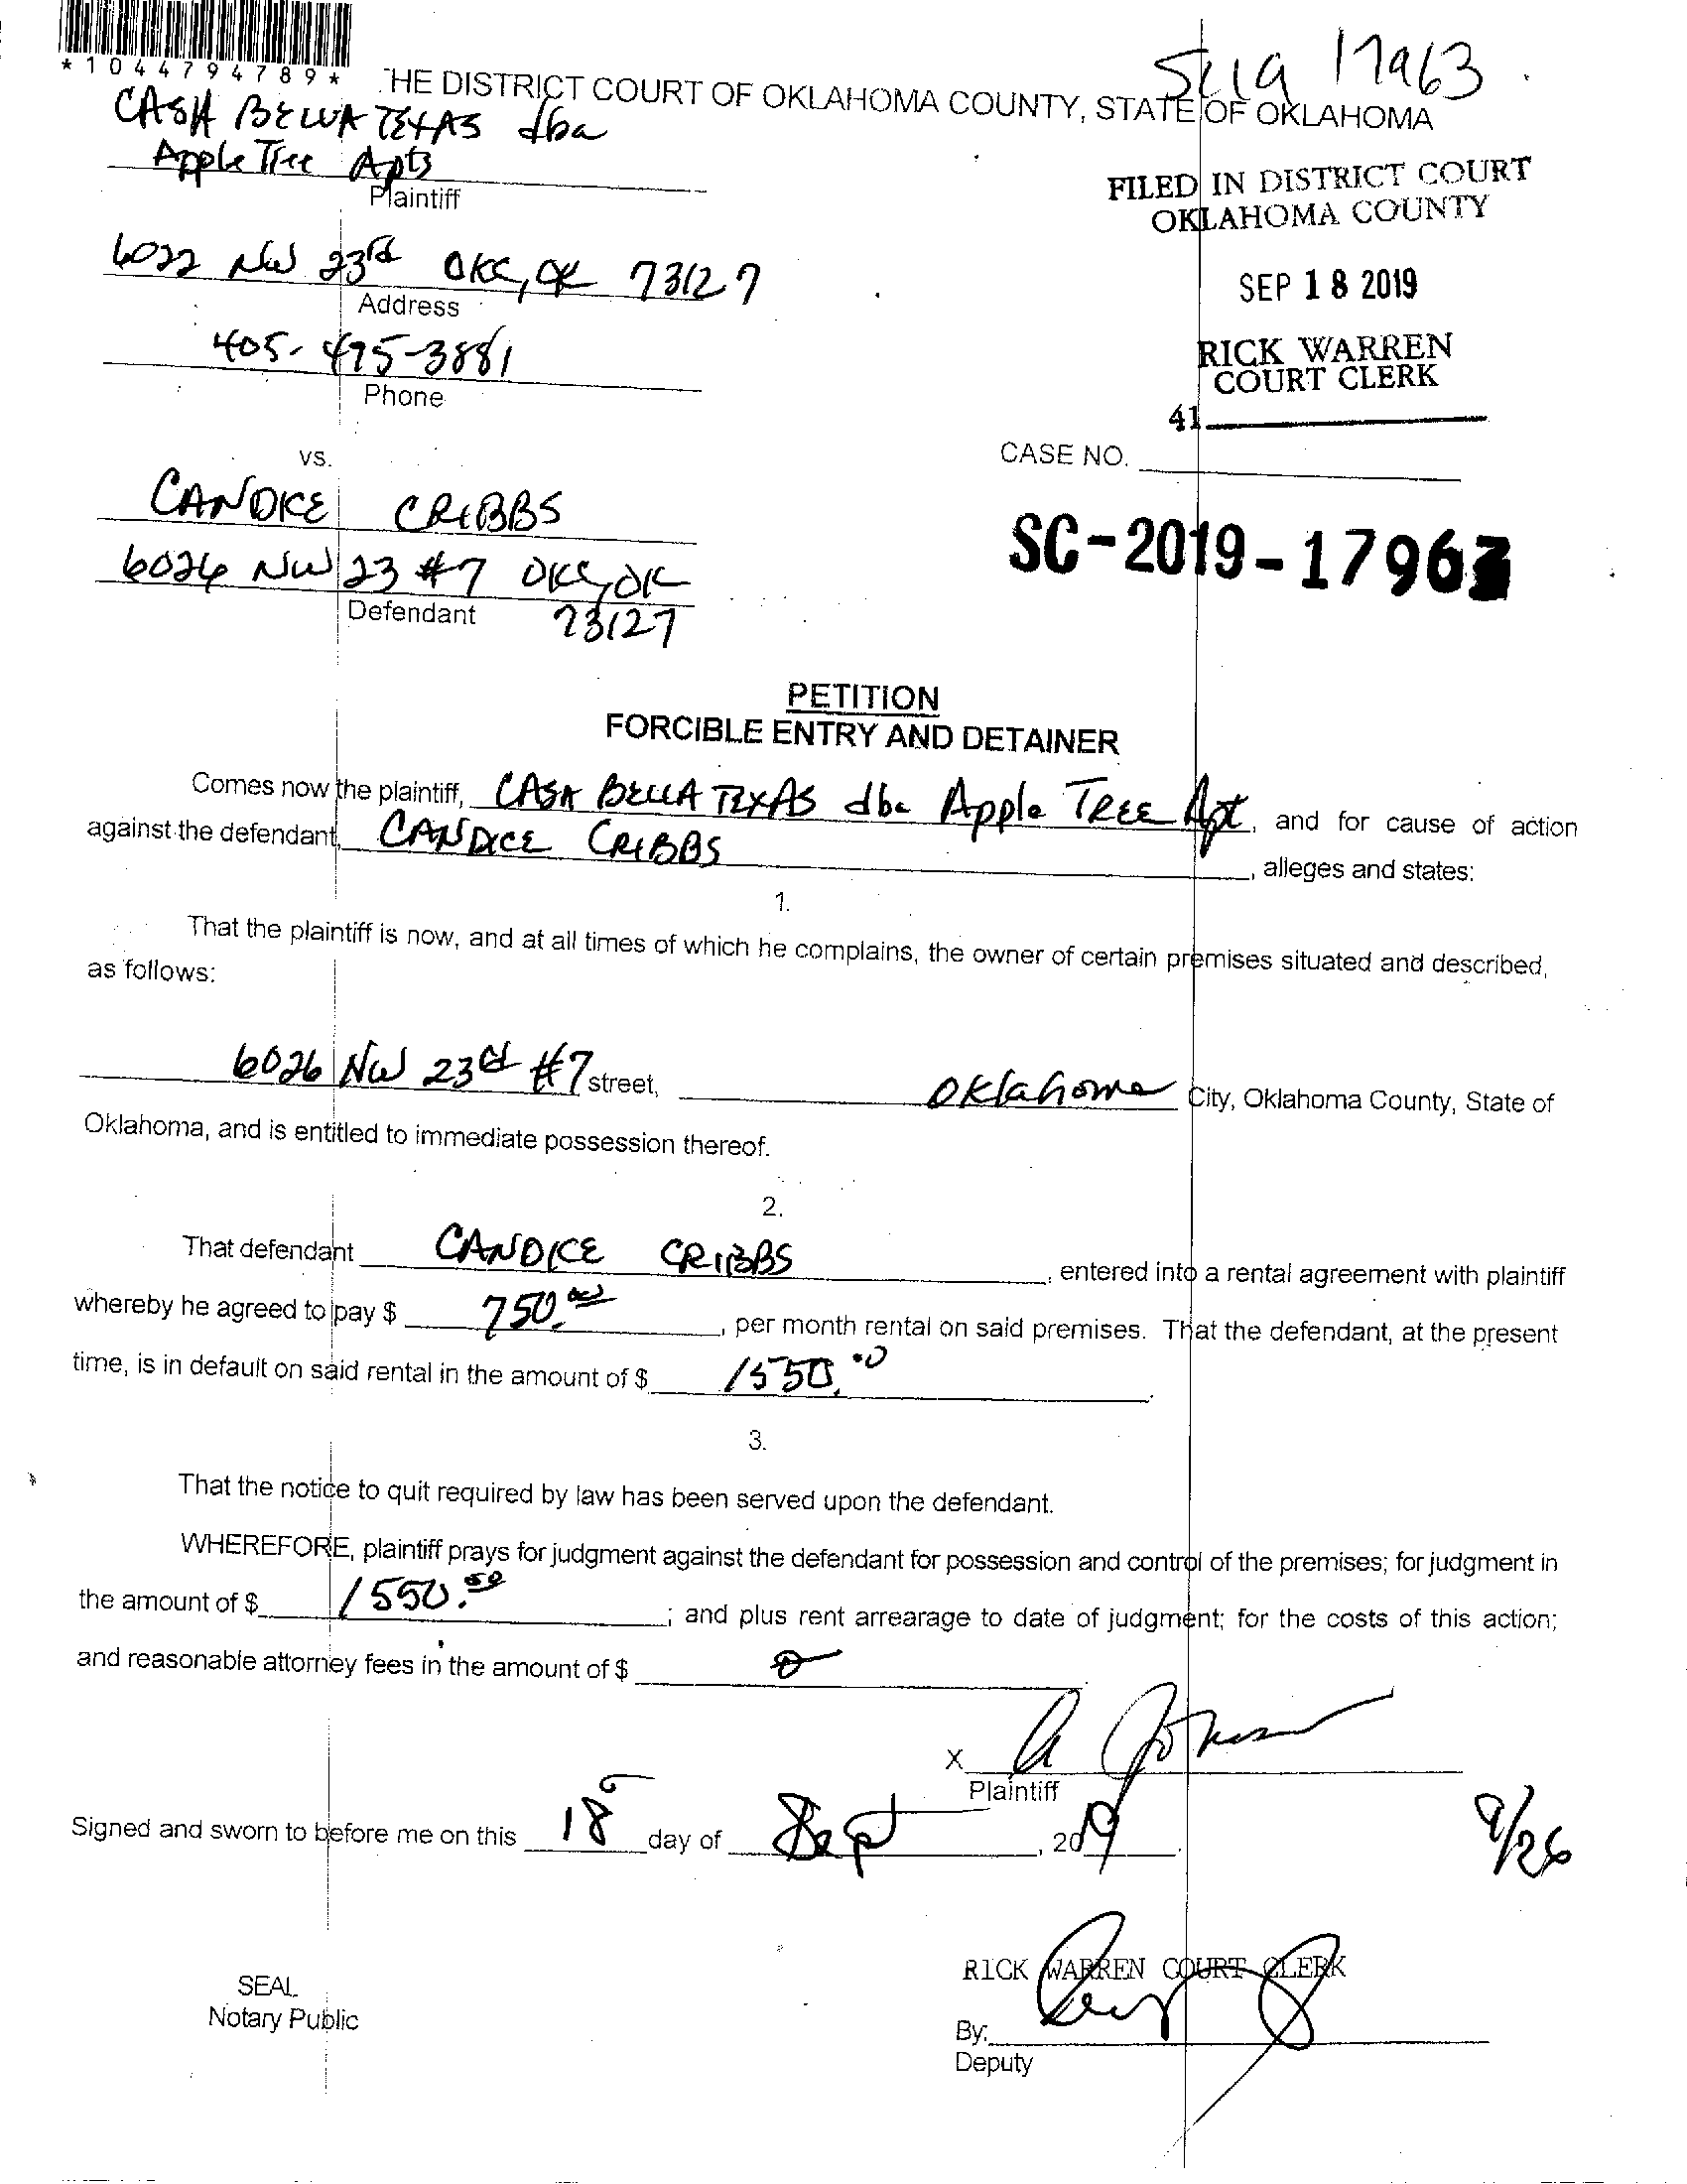 *1044794789*
SC19 17963
THE DISTRICT COURT OF OKLAHOMA COUNTY, STATE OF OKLAHOMA
CASA BELLA TEXAS dba
Apple Tree Apts
Plaintiff
FILED IN DISTRICT COURT
OKLAHOMA COUNTY
6022 NW 23rd OKC, OK 73127
Address
SEP 18 2019
405-495-3881
Phone
RICK WARREN
COURT CLERK
41
CASE NO.
vs.
CANDICE CRIBBS
SC-2019-17963
6026 NW 23 #7 OKC, OK
Defendant
73127
PETITION
FORCIBLE ENTRY AND DETAINER
Comes now the plaintiff, CASA BELLA TEXAS dba Apple TREE Apt, and for cause of action
against the defendant, CANDICE CRIBBS, alleges and states:
1.
That the plaintiff is now, and at all times of which he complains, the owner of certain premises situated and described,
as follows:
6026 NW 23rd #7 street, Oklahoma City, Oklahoma County, State of
Oklahoma, and is entitled to immediate possession thereof.
2.
That defendant CANDICE CRIBBS, entered into a rental agreement with plaintiff
whereby he agreed to pay $ 750.00, per month rental on said premises. That the defendant, at the present
time, is in default on said rental in the amount of $ 1550.00.
3.
That the notice to quit required by law has been served upon the defendant.
WHEREFORE, plaintiff prays for judgment against the defendant for possession and control of the premises; for judgment in
the amount of $ 1550.00; and plus rent arrearage to date of judgment; for the costs of this action;
and reasonable attorney fees in the amount of $ 0
X
Plaintiff
Signed and sworn to before me on this 18 day of Sept, 2019.
9/26
RICK WARREN COURT CLERK
SEAL
Notary Public
By:
Deputy